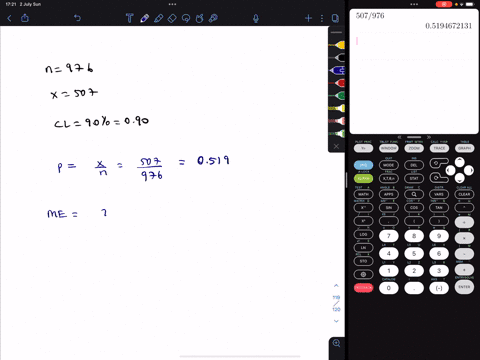 17:21 2 July Sun
n = 976
x = 507
CL = 90% = 0.90
p = x/n = 507/976 = 0.519
ME = ?
119
120
507/976
0.5194672131
WINDOW ZOOM TRACE GRAPH
MODE DEL
ALPHA X,T,θ,n STAT
MATH APPS PRGM VARS CLEAR
SIN COS TAN
( )
LOG 7 8 9
LN 4 5 6
STO 1 2 3
0 . (-) ENTER